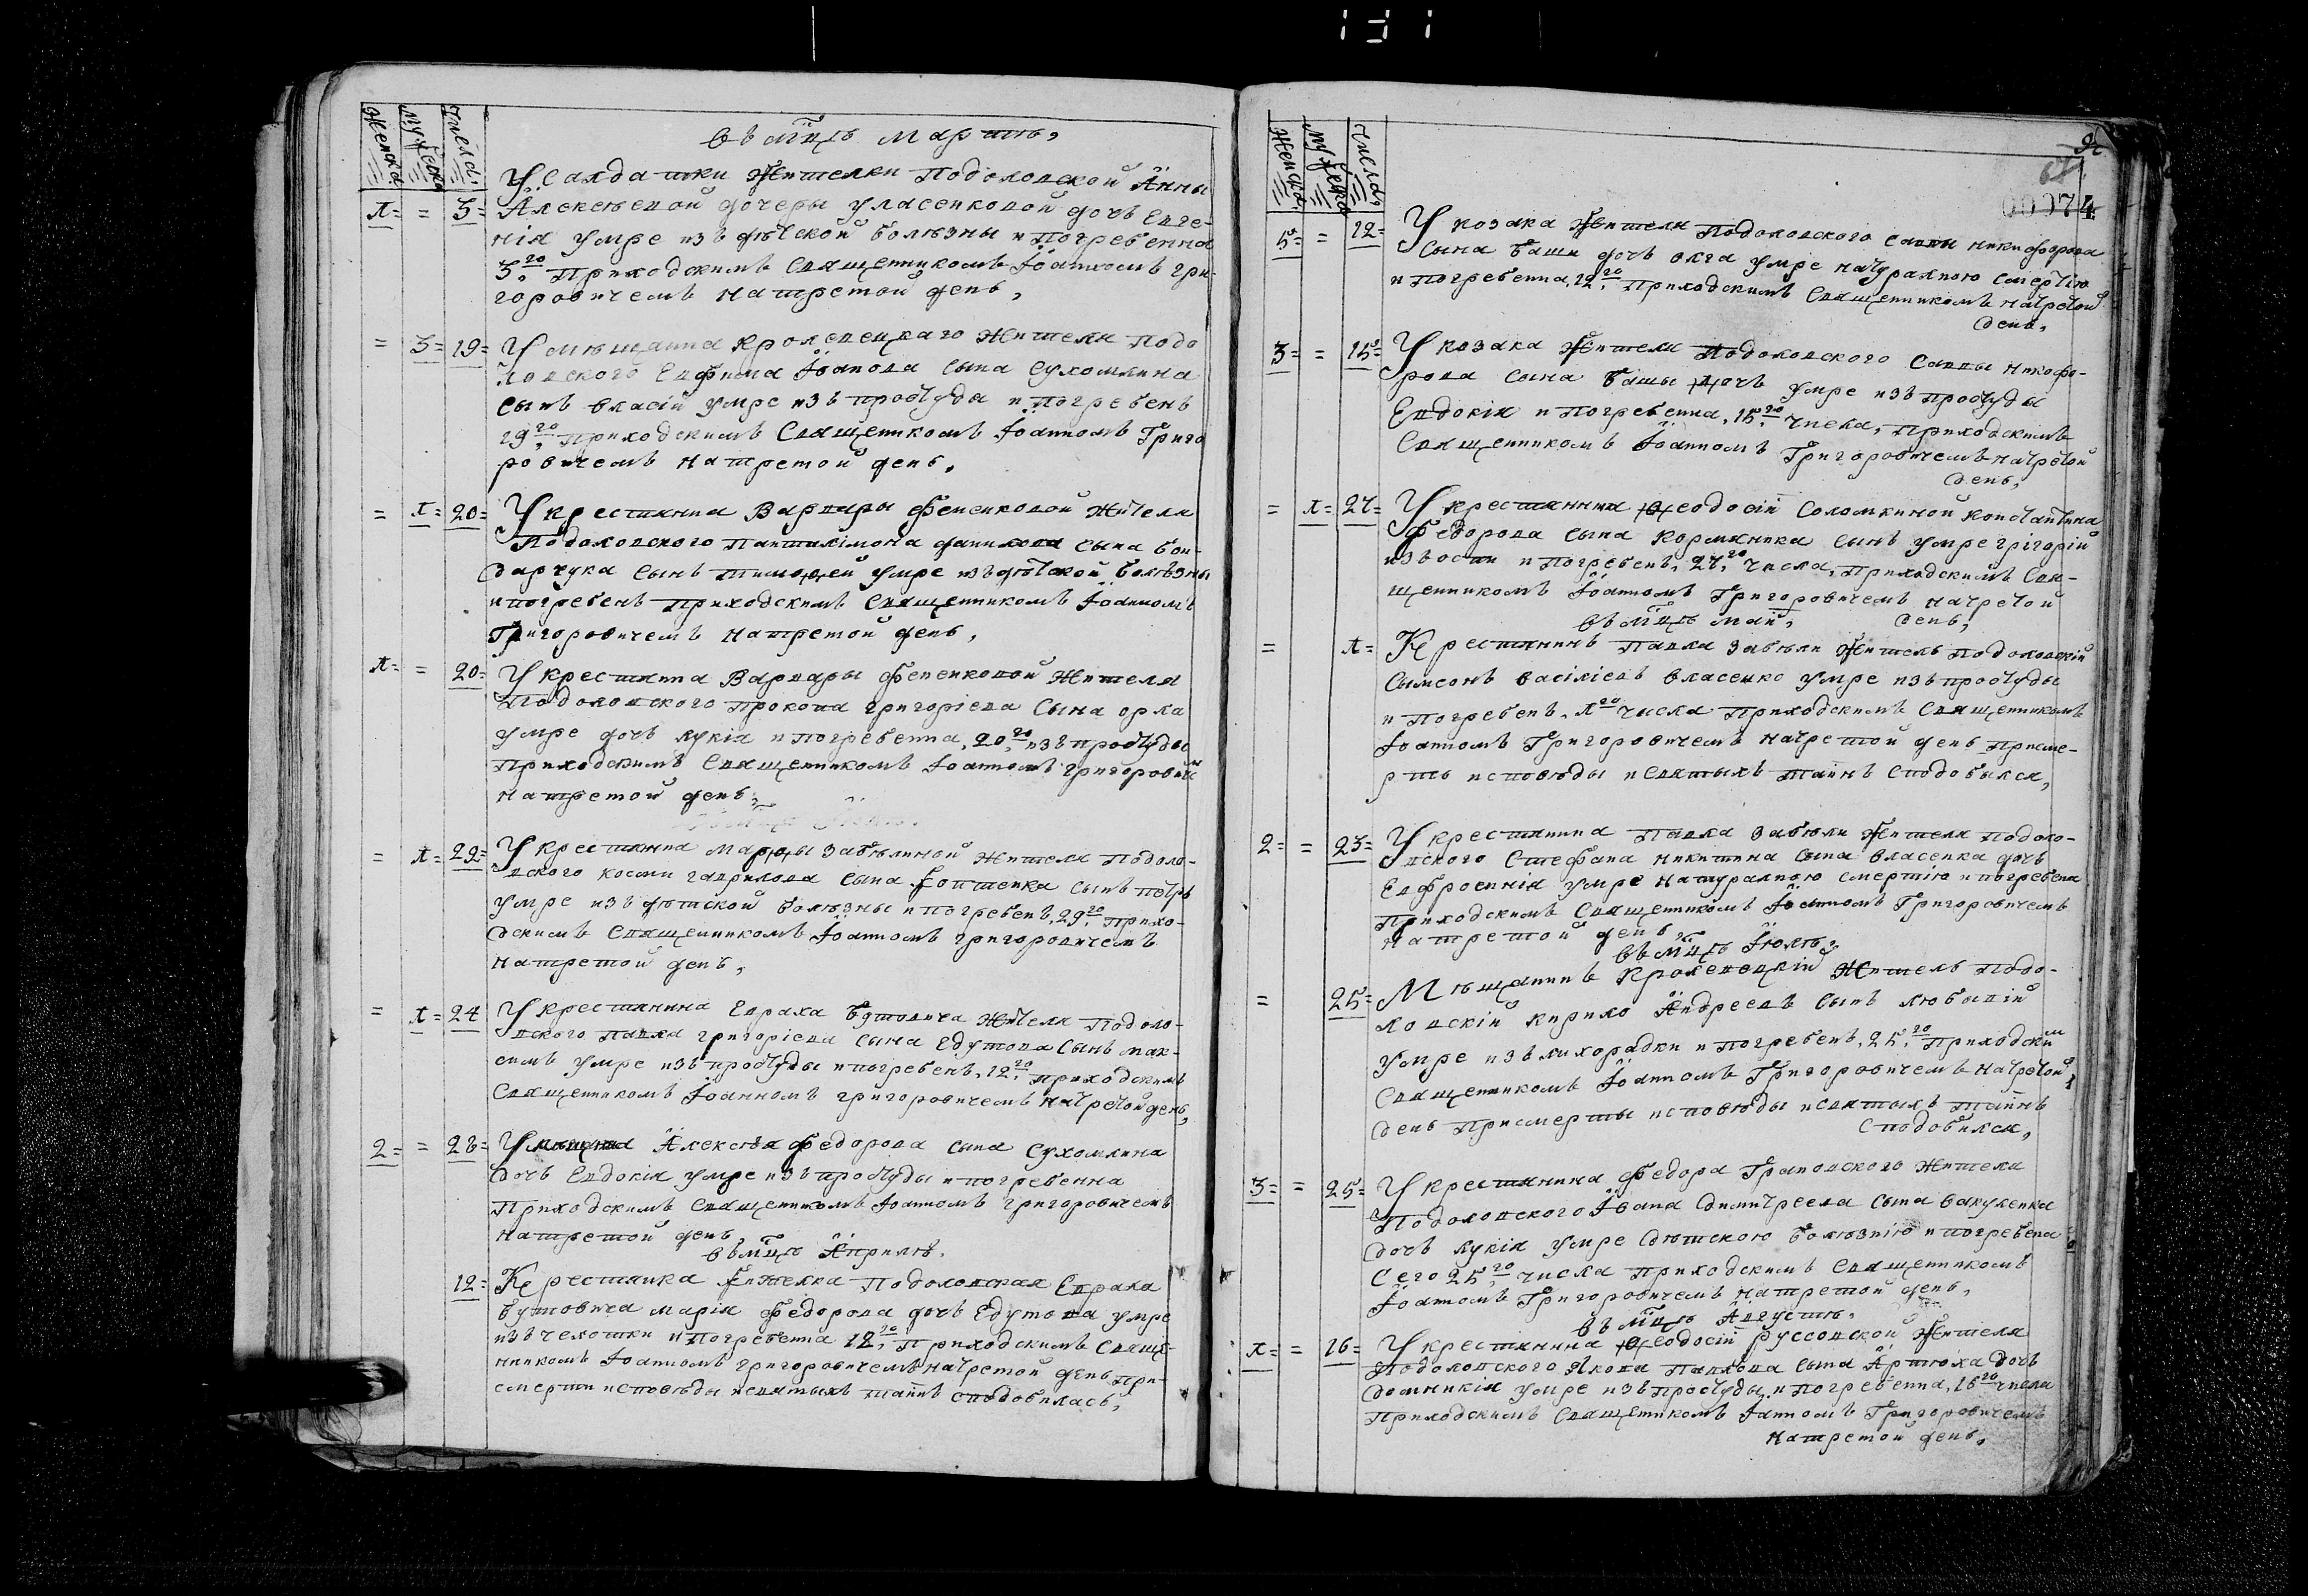 Женска.
Мужеска
Числа.
въ мцѣ мартѣ,
л= = 3= У салдатки жителки Подоловской Анны
Алексѣевой дочеры уласенковой дочь Евге-
нія умре изъ дѣтской болѣзны и погребенна
3,го приходскимъ священникомъ Іоанномъ гри-
горовичемъ на третой день,
= 3= 19= У мѣщанина кролевецкаго жителя подо
ловского Евфима Іоанова сына Сухомлина
сынъ власій умре изъ простуды и погребенъ
19,го приходскимъ священникомъ Іоанномъ Григо
ровичемъ на третой день,
= л= 20= У крестянина Варвары фененковой жителя
Подоловского Пантилімона данилова сына бон-
дарчука сынъ тимоѳей умре изъ дѣтской болѣзны
и погребенъ приходскимъ священникомъ Іоанномъ
Григоровичемъ на третой день,
л= = 20= У крестянина Варвары фененковой жителя
Подоловского прокопа григоріева сына орла
умре дочь лукія и погребенна, 20,го изъ простуды
приходскимъ священникомъ Іоанномъ григоровичем
на третой день,
= л= 29= У крестянина марѳы забѣлиной жителя подоло-
вского косми гаврилова сына сынъ петръ
умре изъ дѣтской болѣзны и погребенъ, 29,го прихо-
дскимъ священникомъ Іоанномъ григоровичемъ
на третой день,
= л= 24 У крестянина Евраха бутовича жителя подоло-
вского павла григоріева сына Едутова сынъ мак-
симъ умре изъ простуды и погребенъ, 12,го приходскимъ
священникомъ Іоанномъ григоровичемъ на третой день,
2= = 26= У мѣщанина Алексѣя федорова сына Сухомлина
дочь Евдокія умре изъ простуды и погребенна
приходскимъ священникомъ Іоанномъ григоровичемъ
на третой день,
въ мцѣ Априлѣ.
12= Крестянка жителка подоловская Евраха
бутовича марія федорова дочь Едутова умре
изъ чехотки и погребенна 12,го приходскимъ свяще-
нникомъ Іоанномъ григоровичемъ на третой день при-
смерти исповѣды и святыхъ таинъ сподобилась,
Женска.
Мужеска
Числа
00074
5= = 12= У козака жителя подоловского савы никифорова
сына баши дочь олга умре натуралною смертію
и погребенна, 12,го приходскимъ священникомъ на третой
день,
3= = 15= У козака жителя подоловского саввы никифо-
рова сына башы дочь умре изъ простуды
Евдокія и погребенна, 15,го числа, приходскимъ
священникомъ Іоанномъ Григоровичемъ на третой
день,
= л= 27= У крестянина ѳеодосій соломкиной константина
федорова сына кормилика сынъ умре григорій
изъ оспи и погребенъ, 27,го числа, приходскимъ свя-
щенникомъ Іоанномъ Григоровичемъ на третой
день,
въ мцѣ май,
= л= Крестянинъ павла забѣли житель подоловскій
сымеонъ васіліевъ власенко умре изъ простуды
и погребенъ, л,го числа приходскимъ священникомъ
Іоанномъ Григоровичемъ на третой день присме-
ртѣ исповѣды и святыхъ таинъ сподобылся,
2= = 23= У крестянина павла забѣли жителя подоло-
вского Стефана никитина сына власенка дочь
Евфросинія умре натуралною смертію и погребена
приходскимъ священникомъ Іоанномъ Григоровичемъ
на третой день
въ мцѣ Іюлѣ,
= 25= Мѣщанинъ кролевецкій житель подо-
ловскій кирило Андреевъ сынъ любывій
умре изъ лихорадки и погребенъ, 25,го приходским
священникомъ Іоанномъ Григоровичемъ на третой
день присмерты исповѣды и святыхъ таинъ
сподобился,
3= = 25= У крестянина федора Грановского жителя
подоловского Іоана димитреева сына вакуленка
дочь лукія умре дѣтскою болѣзнію и погребена
сего 25,го числа приходскимъ священникомъ
Іоанномъ Григоровичемъ на третой день,
въ мцѣ Августѣ.
л= = 16= У крестянина ѳеодосій руссовской жителя
подоловского якова павлова сына Артюха дочь
домникія умре изъ простуды и погребенна, 16,го числа
приходскимъ священникомъ Іанномъ Григоровичемъ
на третой день,